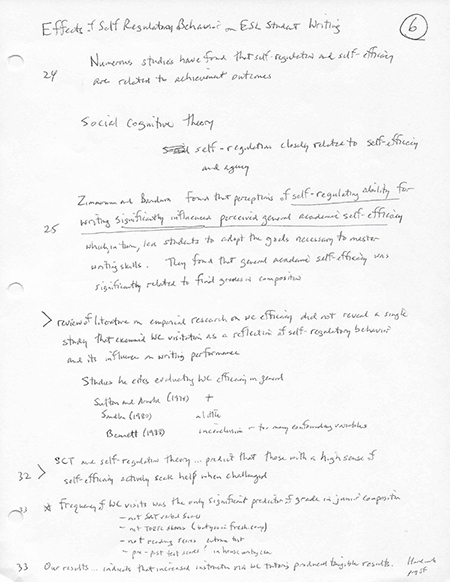 Effects of Self Regulatory Behavior on ESL Student Writing
6
Numerous studies have found that self-regulation and self-efficacy
24
are related to achievement outcomes
Social Cognitive Theory
self-regulation closely related to self-efficacy
and agency
Zimmerman and Bandura found that perceptions of self-regulating ability for
writing significantly influenced perceived general academic self-efficacy
25
which in turn, led students to adopt the goals necessary to master
writing skills. They found that general academic self-efficacy was
significantly related to final grades in composition
> review of literature on empirical research on WC efficacy did not reveal a single
study that examined WC visitation as a reflection of self-regulatory behavior
and its influence on writing performance
Studies he cites evaluating WC efficacy in general
Sutton and Arnold (1974) +
(1980) a little
Bennett (1988) inconclusive - too many confounding variables
> SCT and self-regulation theory... predict that those with a high sense of
32
self-efficacy actively seek help when challenged
33 * frequency of WC visits was the only significant predictor of grade in junior composition
- not SAT verbal scores
- not TOEFL scores (but yes in fresh comp)
- not reading
- pre-post test scores in house only
33 Our results... indicate that increased instruction via WC tutors produced tangible results.